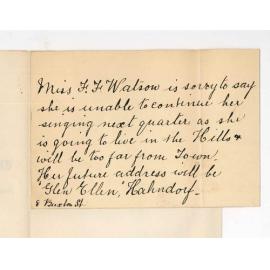 Miss F. F Watson is sorry to say
she is unable to continue her
singing next quarter as she
is going to live in the Hills &
will be too far from Town.
Her future address will be
"Glen Ellen," Hahndorf.
8 Buxton St.